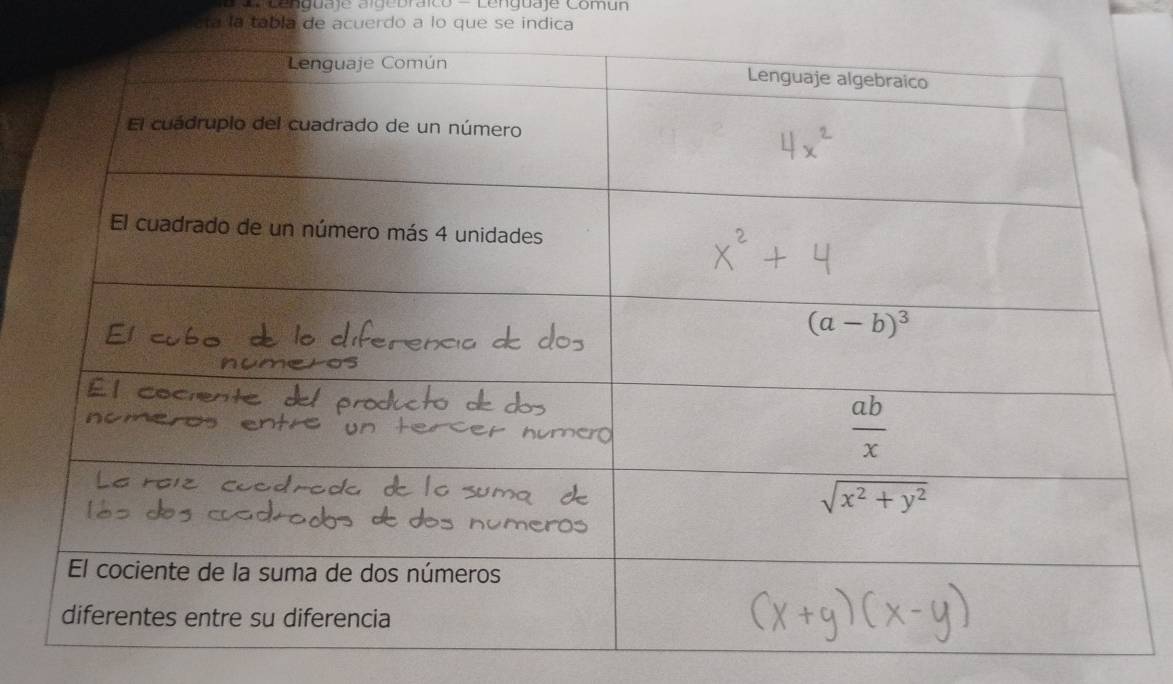 Lenguaje algebraico – Lenguaje Común
la tabla de acuerdo a lo que se indica
Lenguaje Común
Lenguaje algebraico
El cuádruplo del cuadrado de un número
4x²
El cuadrado de un número más 4 unidades
x² + 4
El cubo de la diferencia de dos
numeros
(a − b)³
El cociente del producto de dos
numeros entre un tercer numero
ab
x
La raiz cuadrada de la suma de
los dos cuadrados de dos numeros
√x² + y²
El cociente de la suma de dos números
diferentes entre su diferencia
(x+y)(x-y)